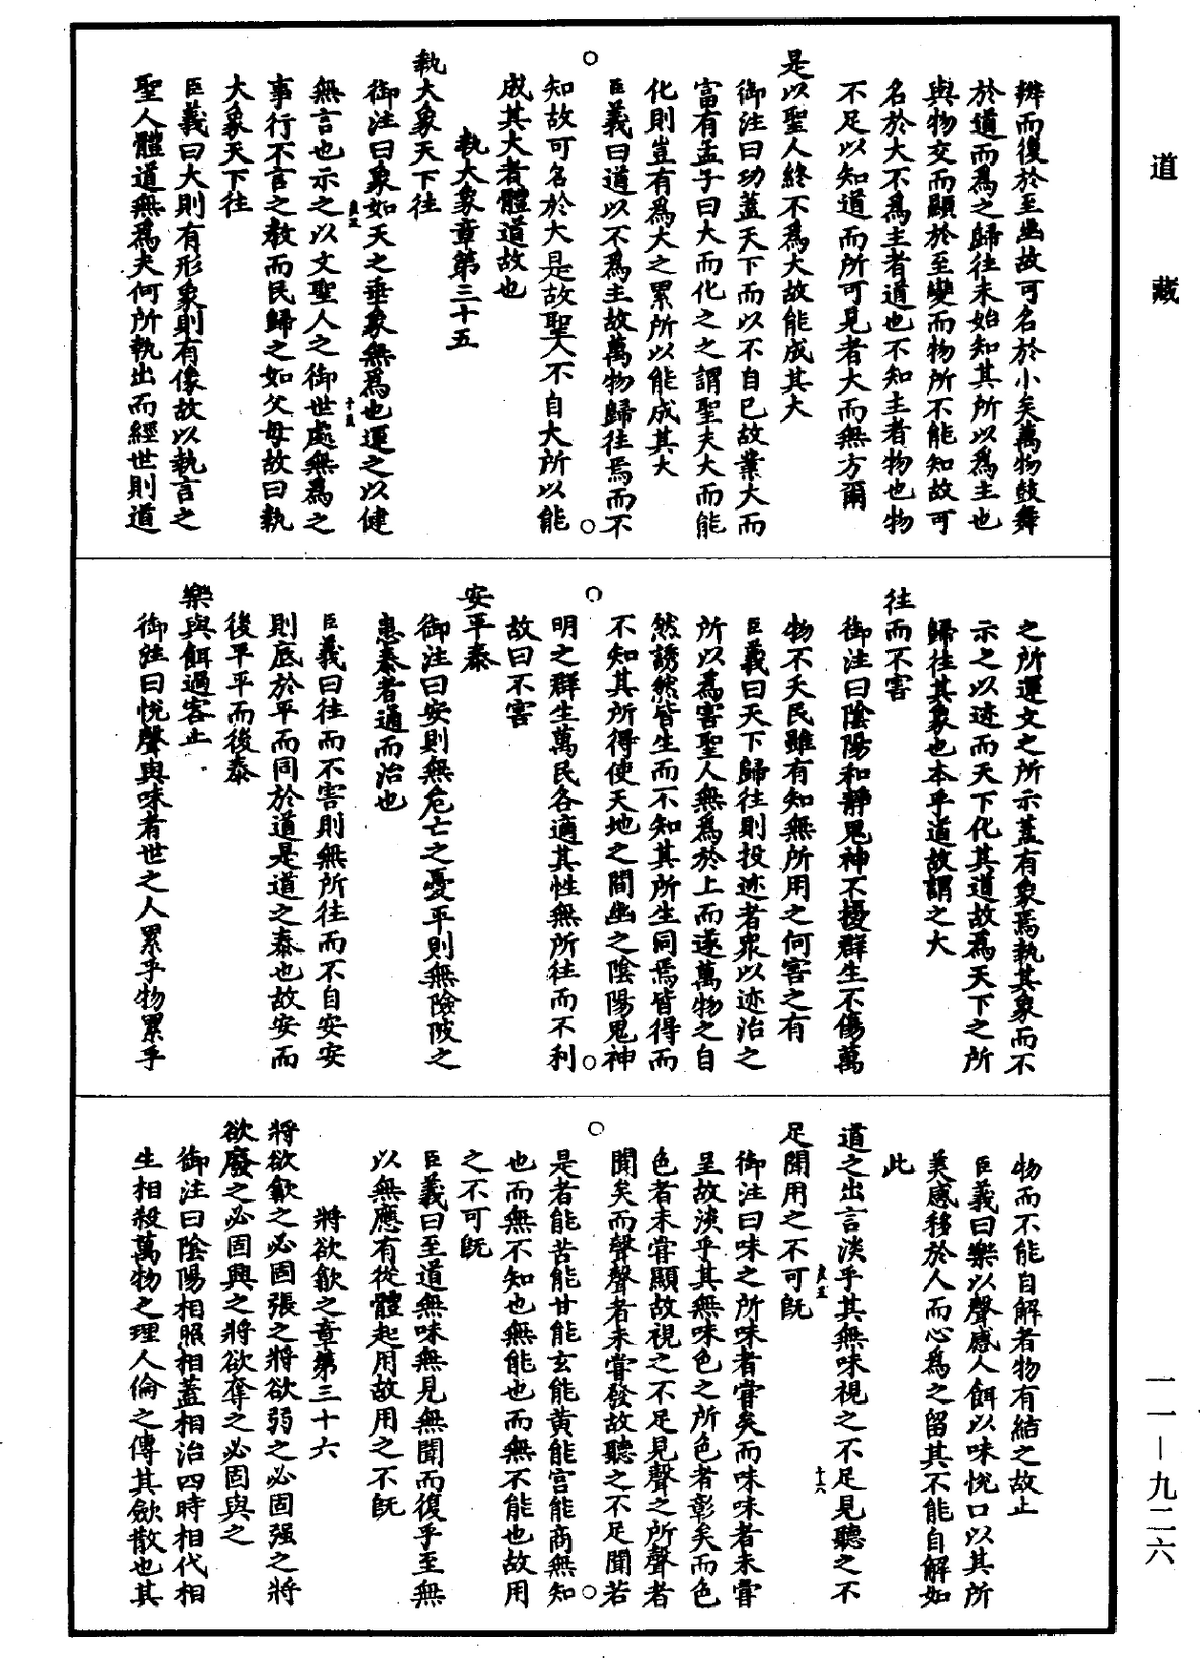 道藏
辨而復於至幽故可名於小矣萬物鼓舞
於道而爲之歸往未始知其所以爲主也
與物交而顯於至變而物所不能知故可
名於大不爲主者道也不知主者物也物
不足以知道而所可見者大而無方爾
是以聖人終不爲大故能成其大
御注曰功蓋天下而以不自已故業大而
富有孟子曰大而化之之謂聖夫大而能
化則豈有爲大之累所以能成其大
臣義曰道以不爲主故萬物歸往焉而不
知故可名於大是故聖人不自大所以能
成其大者體道故也
執大象章第三十五
執大象天下往
御注曰象如天之垂象無爲也運之以健
無言也示之以文聖人之御世處無爲之
事行不言之教而民歸之如父母故曰執
大象天下往
臣義曰大則有形象則有像故以執言之
聖人體道無爲夫何所執出而經世則道
之所運文之所示蓋有象焉執其象而不
示之以迹而天下化其道故爲天下之所
歸往其象也本乎道故謂之大
往而不害
御注曰陰陽和靜鬼神不擾群生不傷萬
物不夭民雖有知無所用之何害之有
臣義曰天下歸往則投迹者衆以迹治之
所以爲害聖人無爲於上而遂萬物之自
然誘然皆生而不知其所生同焉皆得而
不知其所得使天地之間幽之陰陽鬼神
明之群生萬民各適其性無所往而不利
故曰不害
安平泰
御注曰安則無危亡之憂平則無險陂之
患泰者通而治也
臣義曰往而不害則無所往而不自安安
則底於平而同於道是道之泰也故安而
後平平而後泰
樂與餌過客止
御注曰悅聲與味者世之人累乎物累乎
物而不能自解者物有結之故止
臣義曰樂以聲感人餌以味悅口以其所
美感移於人而心爲之留其不能自解如
此
道之出言淡乎其無味視之不足見聽之不
足聞用之不可旣
御注曰味之所味者甞矣而味味者未甞
呈故淡乎其無味色之所色者彰矣而色
色者未甞顯故視之不足見聲之所聲者
聞矣而聲聲者未甞發故聽之不足聞若
是者能苦能甘能玄能黃能宮能商無知
也而無不知也無能也而無不能也故用
之不可旣
臣義曰至道無味無見無聞而復乎至無
以無應有從體起用故用之不旣
將欲歙之章第三十六
將欲歙之必固張之將欲弱之必固强之將
欲廢之必固興之將欲奪之必固與之
御注曰陰陽相照相蓋相治四時相代相
生相殺萬物之理人倫之傳其斂散也其
一一—九二六